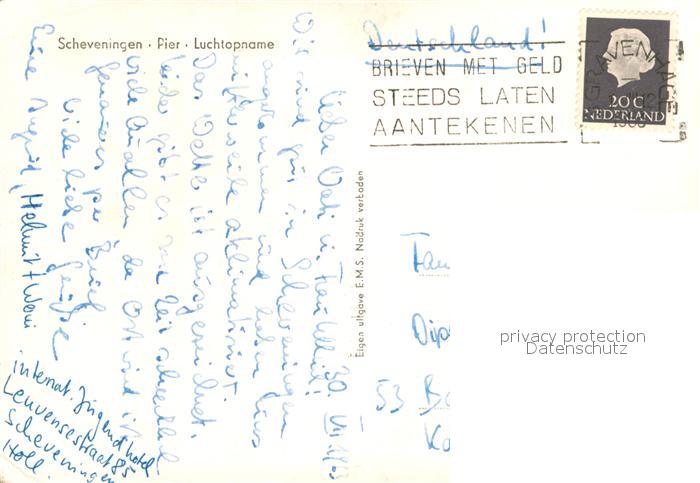 Scheveningen · Pier · Luchtopname
Deutschland!
BRIEVEN MET GELD
STEEDS LATEN
AANTEKENEN
'S GRAVENHAGE
20 C
NEDERLAND
Eigen uitgave E.M.S. Nadruk verboden
30. VII.
Wir sind gut in Scheveningen
angekommen und haben uns
mittlerweile aklimatisiert.
Das Wetter ist ausgezeichnet.
Leider gibt es zur Zeit
viele Quallen, da Ostwind ist.
Genaueres per Brief.
Viele liebe Grüße
Eure Sigrid, Helmut +
Internat. Jugendhotel
Leuvensestraat 85
Scheveningen
Holl.
Fam
Dip
53 Bo
Ko
privacy protection
Datenschutz